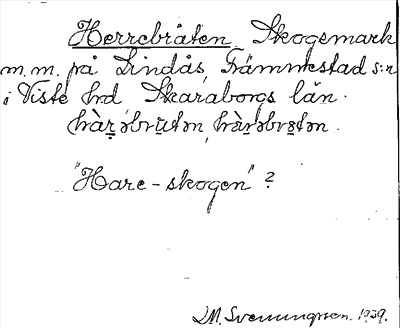 Herrebråten. Skogsmark
m.m. på Lindås, Främmestad s:n
i Viste hd Skaraborgs län.
hàr̥əbrutən, hàr̥əbrotən.
"Hare-skogen"?
D.M. Svenungsson. 1929.